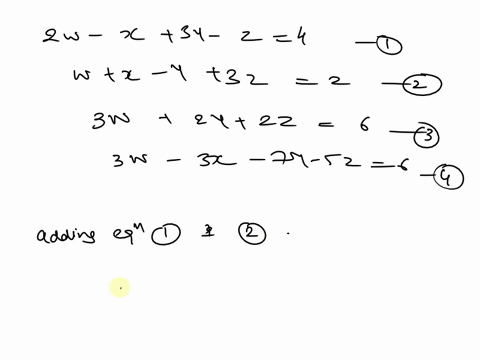 2w - x + 3y - z = 4 —①
w + x - y + 3z = 2 —②
3w + 2y + 2z = 6 —③
3w - 3x - 7y - 5z = 6 —④
adding eqⁿ ① & ② .